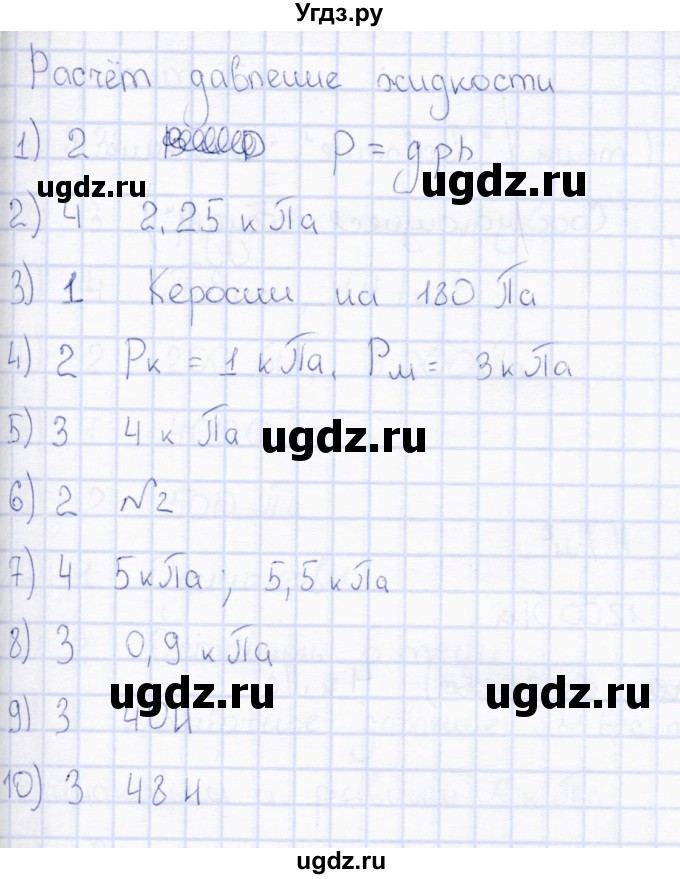 Угдз.ру
Расчёт давление жидкости
1) 2 p = gρh
ugdz.ru ugdz.ru
2) 4 2,25 кПа
3) 1 Керосин на 180 Па
4) 2 Pк = 1 кПа, Pм = 3кПа
5) 3 4 кПа
ugdz.ru
6) 2 №2
7) 4 5кПа; 5,5кПа
8) 3 0,9 кПа
ugdz.ru ugdz.ru
9) 3 40Н
10) 3 48Н
ugdz.ru